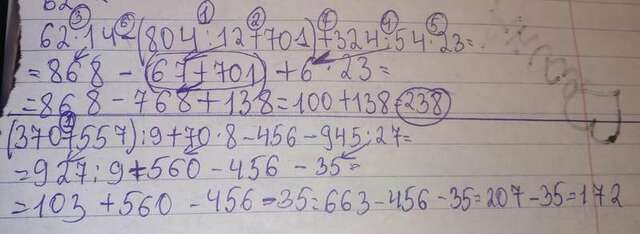 ③ ⑥ ① ② ⑦ ④ ⑤
62·14-(804:12+701)+324:54·23=
=868-(67+701)+6·23=
=868-768+138=100+138=238
(370+557):9+70·8-456-945:27=
=927:9+560-456-35=
=103+560-456-35=663-456-35=207-35=172